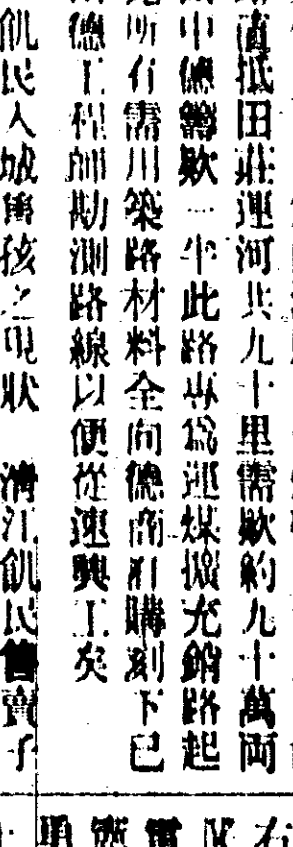 直抵田莊運河共九十里需款約九十萬両
中德籌款一半此路專爲運煤擴充銷路起
所有需用築路材料全向德商行購刻下已
德工程師勘測路線以便從速興工矣
飢民入城賣孩之現狀 清江飢民售賣子